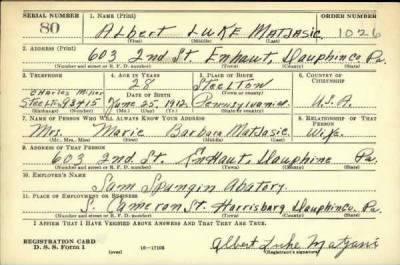 SERIAL NUMBER 1. NAME (Print) ORDER NUMBER
80 ALBERT LUKE MATJASIC 1026
(First) (Middle) (Last)
2. ADDRESS (Print)
603 2nd St. Enhaut, Dauphin Co. Pa.
(Number and street or R. F. D. number) (Town) (County) (State)
3. TELEPHONE 4. AGE IN YEARS 5. PLACE OF BIRTH 6. COUNTRY OF CITIZENSHIP
28 Steelton
Charles Miller DATE OF BIRTH (Town or county)
Steel 93415 June 25 1912 Pennsylvania U.S.A.
(Exchange) (Number) (Mo.) (Day) (Yr.) (State or country)
7. NAME OF PERSON WHO WILL ALWAYS KNOW YOUR ADDRESS 8. RELATIONSHIP OF THAT PERSON
Mrs. Marie Barbara Matjasic Wife
(Mr., Mrs., Miss) (First) (Middle) (Last)
9. ADDRESS OF THAT PERSON
603 2nd. St. EnHaut, Dauphine Pa.
(Number and street or R. F. D. number) (Town) (County) (State)
10. EMPLOYER'S NAME
Sam Spungin Abatory.
11. PLACE OF EMPLOYMENT OR BUSINESS
S. Cameron St. Harrisburg Dauphin Co. Pa.
(Number and street or R. F. D. number) (Town) (County) (State)
I AFFIRM THAT I HAVE VERIFIED ABOVE ANSWERS AND THAT THEY ARE TRUE.
REGISTRATION CARD
D. S. S. Form 1 16—17105 Albert Luke
(Registrant's signature)